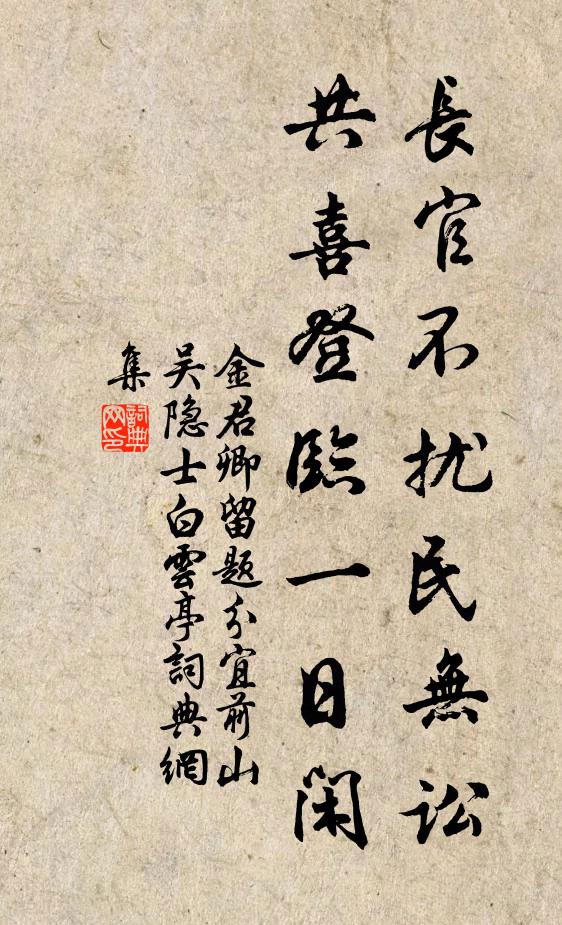 長官不扰民無訟
共喜登臨一日闲
金君卿留题分宜前山
吴隐士白雲亭詞典網
集
詞典
网印